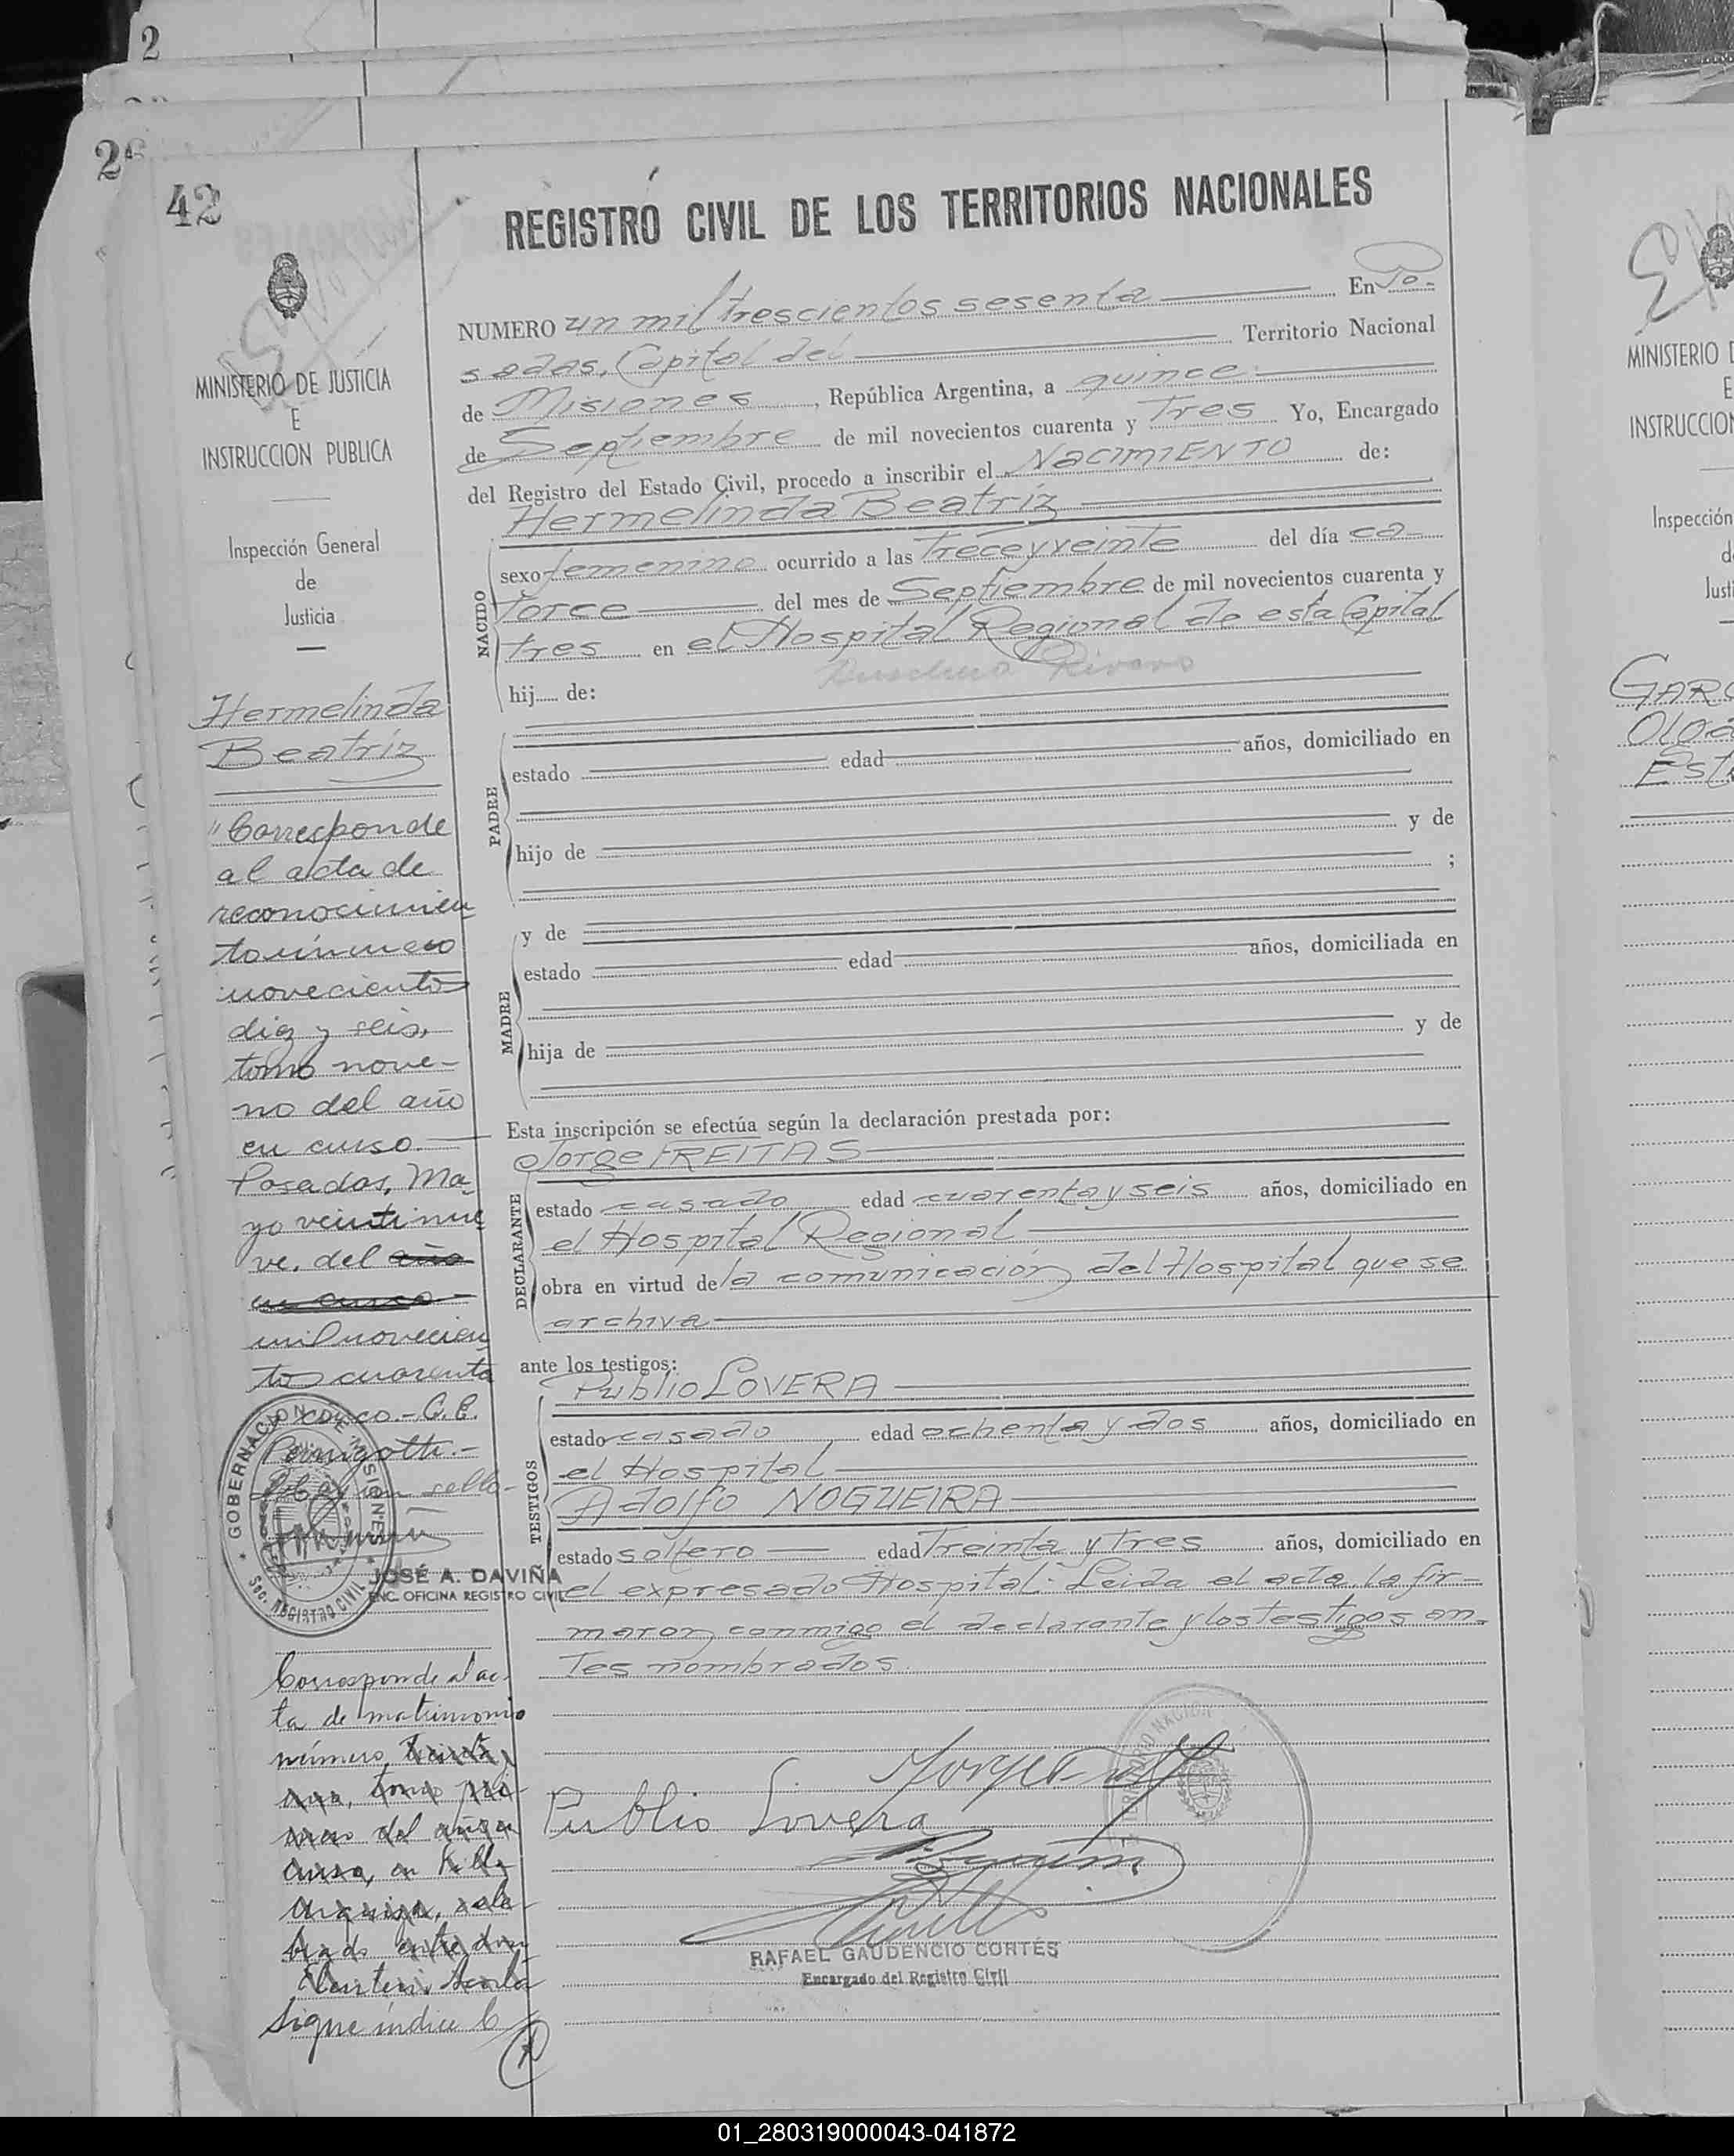 2
26
42
REGISTRO CIVIL DE LOS TERRITORIOS NACIONALES
MINISTERIO DE JUSTICIA
E
INSTRUCCION PUBLICA
Inspección General
de
Justicia
Hermelinda
Beatríz
"Corresponde
al acta de
reconocimien
to número
novecientos
diez y seis,
tomo nove-
no del año
en curso.
Posadas, Ma-
yo veintinue
ve. del año
en curso
mil novecien
tos cuarenta
y cinco.- C.E.
Hay un sello-
GOBERNACION DE MISIONES
SEC. REGISTRO CIVIL
JOSÉ A. DAVIÑA
ENC. OFICINA REGISTRO CIVIL
Corresponde al ac-
ta de matrimonio
número treinta y
uno, tomo pri-
mero del año en
curso, en Villa
Urquiza, cele-
brado entre don
Sigue índice C
NUMERO un mil trescientos sesenta En Po-
sadas, Capital del Territorio Nacional
de Misiones, República Argentina, a quince
de Septiembre de mil novecientos cuarenta y Tres Yo, Encargado
del Registro del Estado Civil, procedo a inscribir el NACIMIENTO de:
Hermelinda Beatríz
NACIDO
sexo femenino ocurrido a las Trece y veinte del día ca-
torce del mes de Septiembre de mil novecientos cuarenta y
tres en el Hospital Regional de esta Capital
hij de:
PADRE
estado edad años, domiciliado en
hijo de y de
;
MADRE
y de
estado edad años, domiciliada en
hija de y de
Esta inscripción se efectúa según la declaración prestada por:
Jorge FREITAS
DECLARANTE
estado casado edad cuarenta y seis años, domiciliado en
el Hospital Regional
obra en virtud de la comunicación del Hospital que se
archiva
ante los testigos:
Publio LOVERA
TESTIGOS
estado casado edad ochenta y dos años, domiciliado en
el Hospital
Adolfo NOGUEIRA
estado soltero edad Treinta y Tres años, domiciliado en
el expresado Hospital. Leida el acta, la fir-
maron conmigo el declarante y los testigos an-
tes nombrados.
TERRITORIO NACIONAL
Publio Lovera
RAFAEL GAUDENCIO CORTÉS
Encargado del Registro Civil
MINISTERIO D
E
INSTRUCCION
Inspección
d
Justi
GARC
Olod
Est
01_280319000043-041872